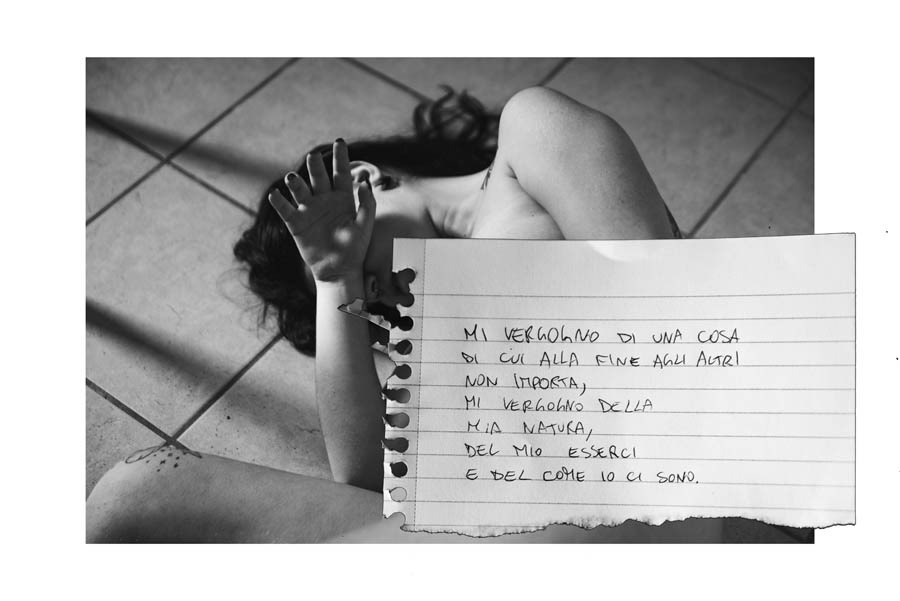 MI VERGOGNO DI UNA COSA
DI CUI ALLA FINE AGLI ALTRI
NON IMPORTA,
MI VERGOGNO DELLA
MIA NATURA,
DEL MIO ESSERCI
E DEL COME IO CI SONO.